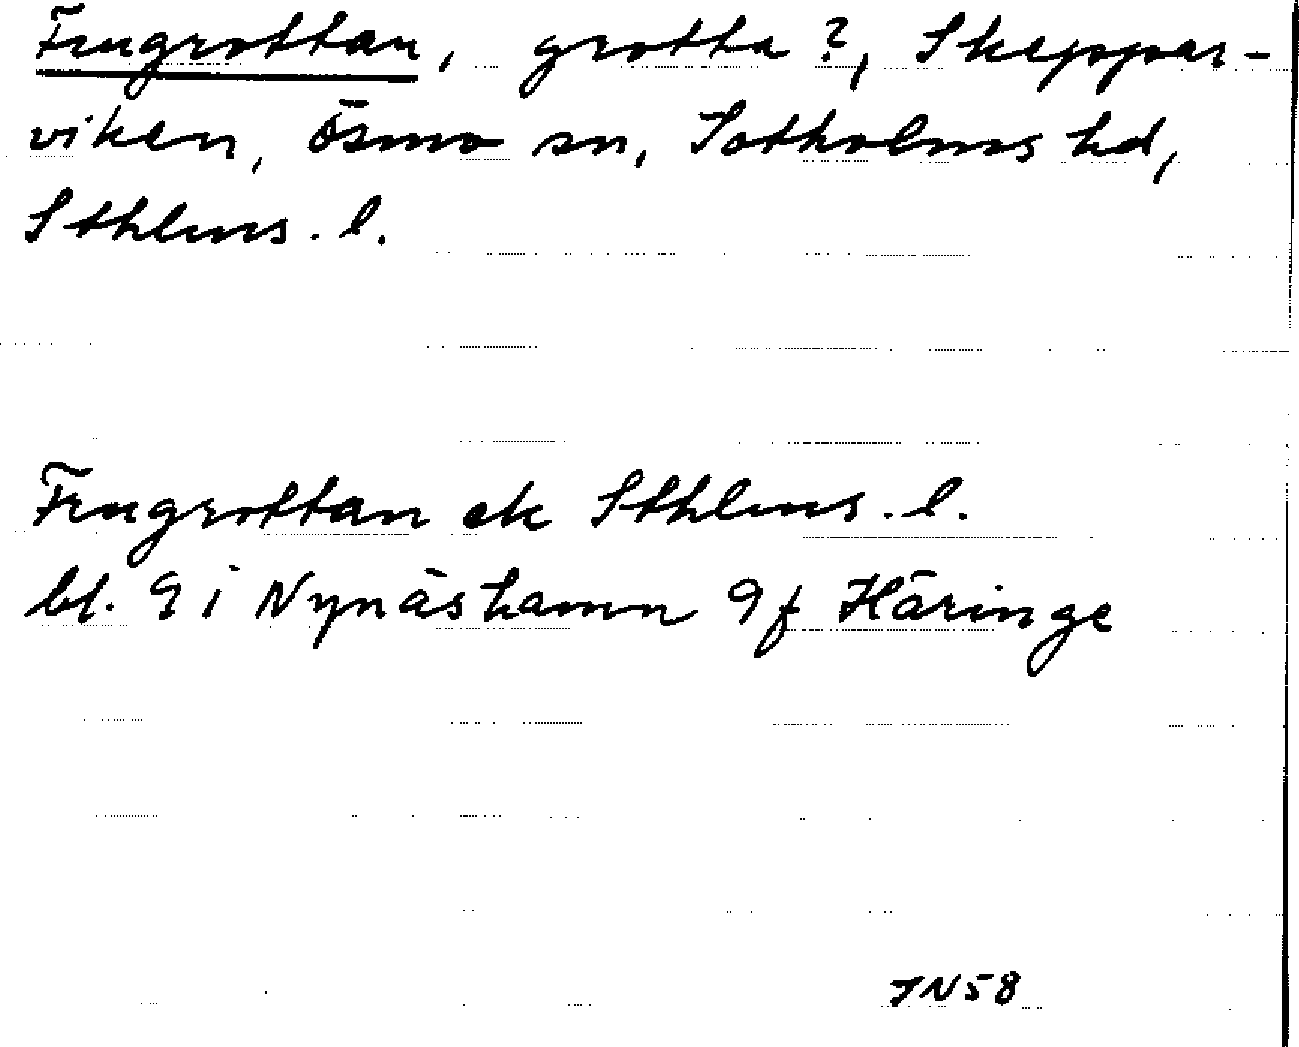 Frugrottan, grotta ?, Skeppar-
viken, Ösmo sn, Sotholms hd,
Sthlms. l.
Frugrottan ek Sthlms. l.
bl. 9 i Nynäshamn 9f Häringe
TN58